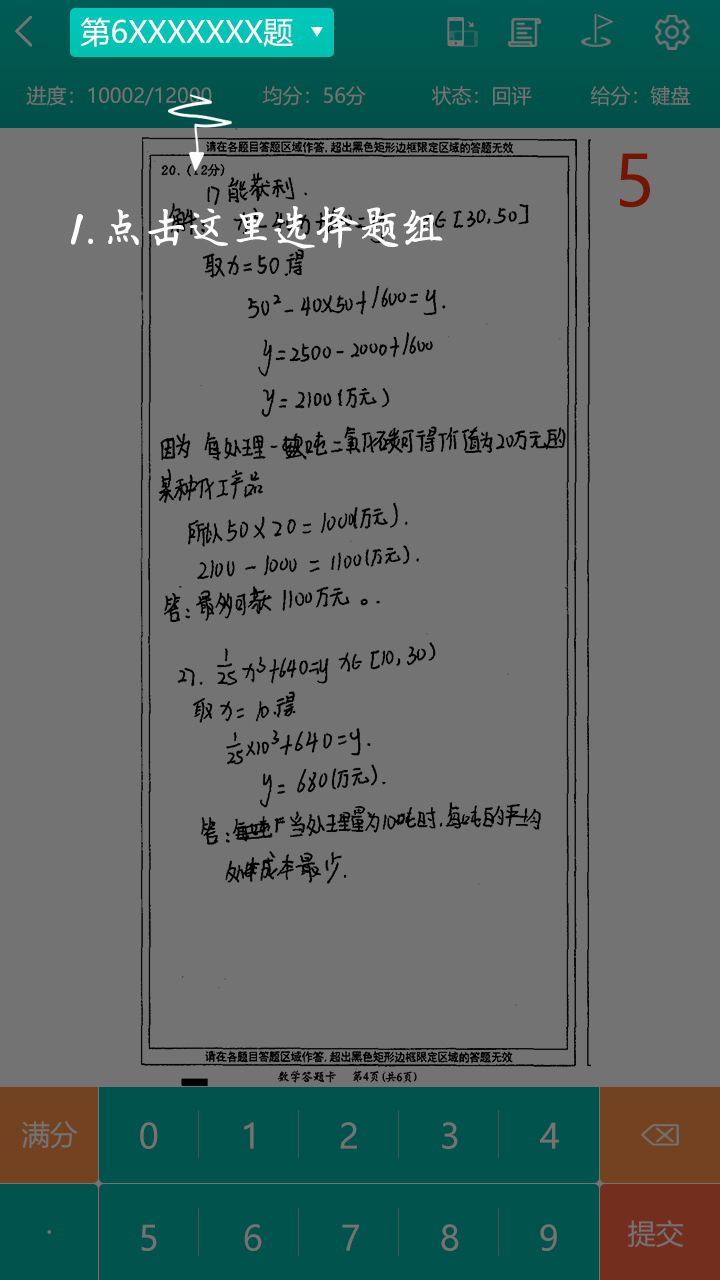 第6XXXXXXX题
进度：10002/12000 均分：56分 状态：回评 给分：键盘
请在各题目答题区域作答,超出黑色矩形边框限定区域的答题无效
5
20.(12分)
1) 能获利.
1.点击这里选择题组
∈[30,50]
取x=50得
50²-40×50+1600=y.
y=2500-2000+1600
y=2100(万元)
因为 每处理一吨二氧化碳可得价值为20万元的
某种化工产品
所以50×20=1000(万元).
2100-1000=1100(万元).
答:最多可获1100万元。.
27. 1/25 x³+640=y x∈[10,30)
取x=10.得
1/25×10³+640=y.
y=680(万元).
答: 当处理量为10吨时,每吨的平均
成本最少.
请在各题目答题区域作答,超出黑色矩形边框限定区域的答题无效
数学答题卡 第4页(共6页)
满分 0 1 2 3 4
· 5 6 7 8 9 提交